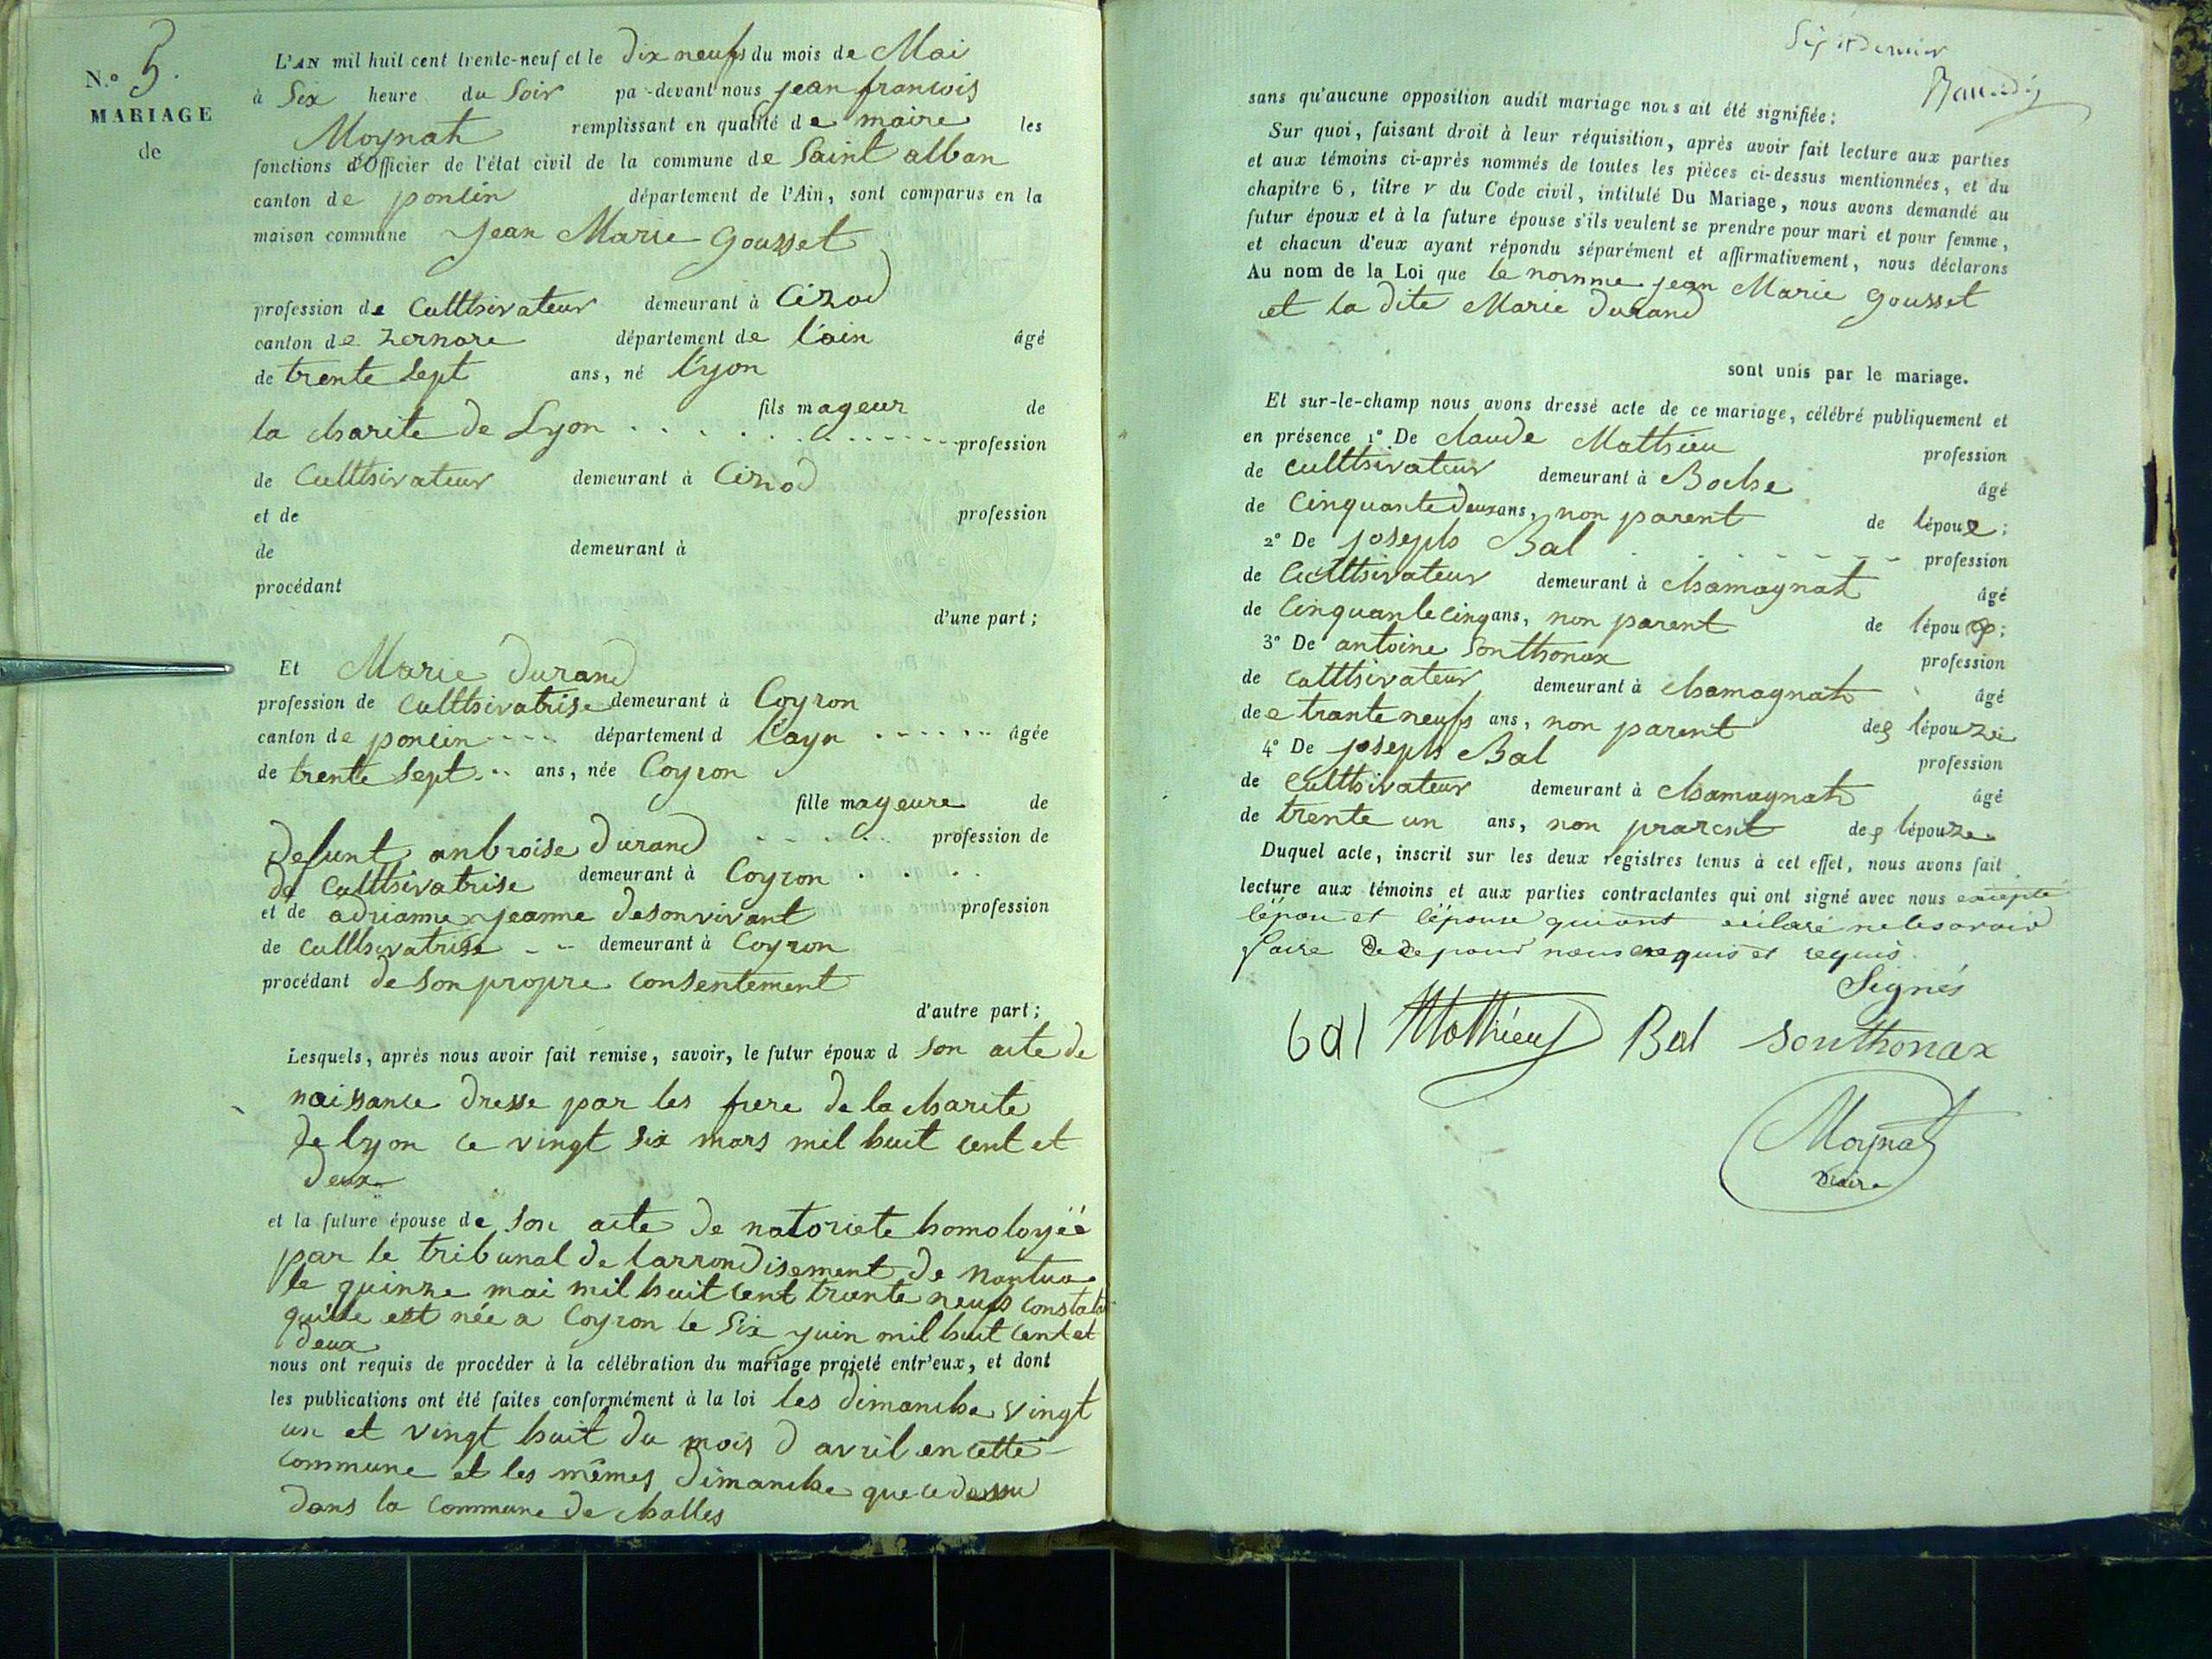 N.° 5.
MARIAGE
de
L'AN mil huit cent trente-neuf et le dix neufs du mois de Mai
à Six heure du Soir pa-devant nous jean francois
Moynat remplissant en qualité de maire les
fonctions d'Officier de l'état civil de la commune de Saint alban
canton de poncin département de l'Ain, sont comparus en la
maison commune jean Marie gousset
profession de Culthivateur demeurant à Cizod
canton de zernore département de l'ain âgé
de trente Sept ans, né lyon
fils mageur de
la charite de Lyon profession
de Culthivateur demeurant à Cizod
et de profession
de demeurant à
procédant
d'une part;
Et Marie durand
profession de Culthivatrise demeurant à Coyron
canton de poncin département d l'ayn âgée
de trente Sept ans, née Coyron
fille mageure de
defunt anbroise durand profession de
de Culthivatrise demeurant à Coyron
et de adrianne jeanne desonvivant profession
de Culthivatrise demeurant à Coyron
procédant de son propre consentement
d'autre part;
Lesquels, après nous avoir fait remise, savoir, le futur époux d son acte de
naissance dresse par les frere de la charite
de lyon ce vingt six mars mil huit cent et
deux
et la future épouse de son acte de natoriete homologéé
par le tribunal de larrondisement de nantua
le quinze mai mil huit cent trante neufs
qu'elle est née a Coyron le Six juin mil huit cent et
deux
nous ont requis de procéder à la célébration du mariage projeté entr'eux, et dont
les publications ont été faites conformément à la loi les dimanche vingt
un et vingt huit du mois d avril en cette
commune et les mêmes dimanche que
dans la commune de challes
sans qu'aucune opposition audit mariage nous ait été signifiée;
Sur quoi, faisant droit à leur réquisition, après avoir fait lecture aux parties
et aux témoins ci-après nommés de toutes les pièces ci-dessus mentionnées, et du
chapitre 6, titre v du Code civil, intitulé Du Mariage, nous avons demandé au
futur époux et à la future épouse s'ils veulent se prendre pour mari et pour femme,
et chacun d'eux ayant répondu séparément et affirmativement, nous déclarons
Au nom de la Loi que le nomme jean Marie gousset
et la dite Marie durand
sont unis par le mariage.
Et sur-le-champ nous avons dressé acte de ce mariage, célébré publiquement et
en présence 1° De claude Mathieu profession
de culthivateur demeurant à Boche âgé
de Cinquante deux ans, non parent de lépoue;
2° De joseph Bal profession
de Culthivateur demeurant à chamagnat âgé
de Cinquante cinq ans, non parent de lépou;
3° De antoine Sonthonax profession
de culthivateur demeurant à chamagnat âgé
de trante neufs ans, non parent de lépouze
4° De joseph Bal profession
de Culthivateur demeurant à chamagnat âgé
de trente un ans, non prarent de lépouze
Duquel acte, inscrit sur les deux registres tenus à cet effet, nous avons fait
lecture aux témoins et aux parties contractantes qui ont signé avec nous excepté
lépou et lépouse
faire requis
Signés
bal Mathieu Bal Sonthonax
Moynat
maire